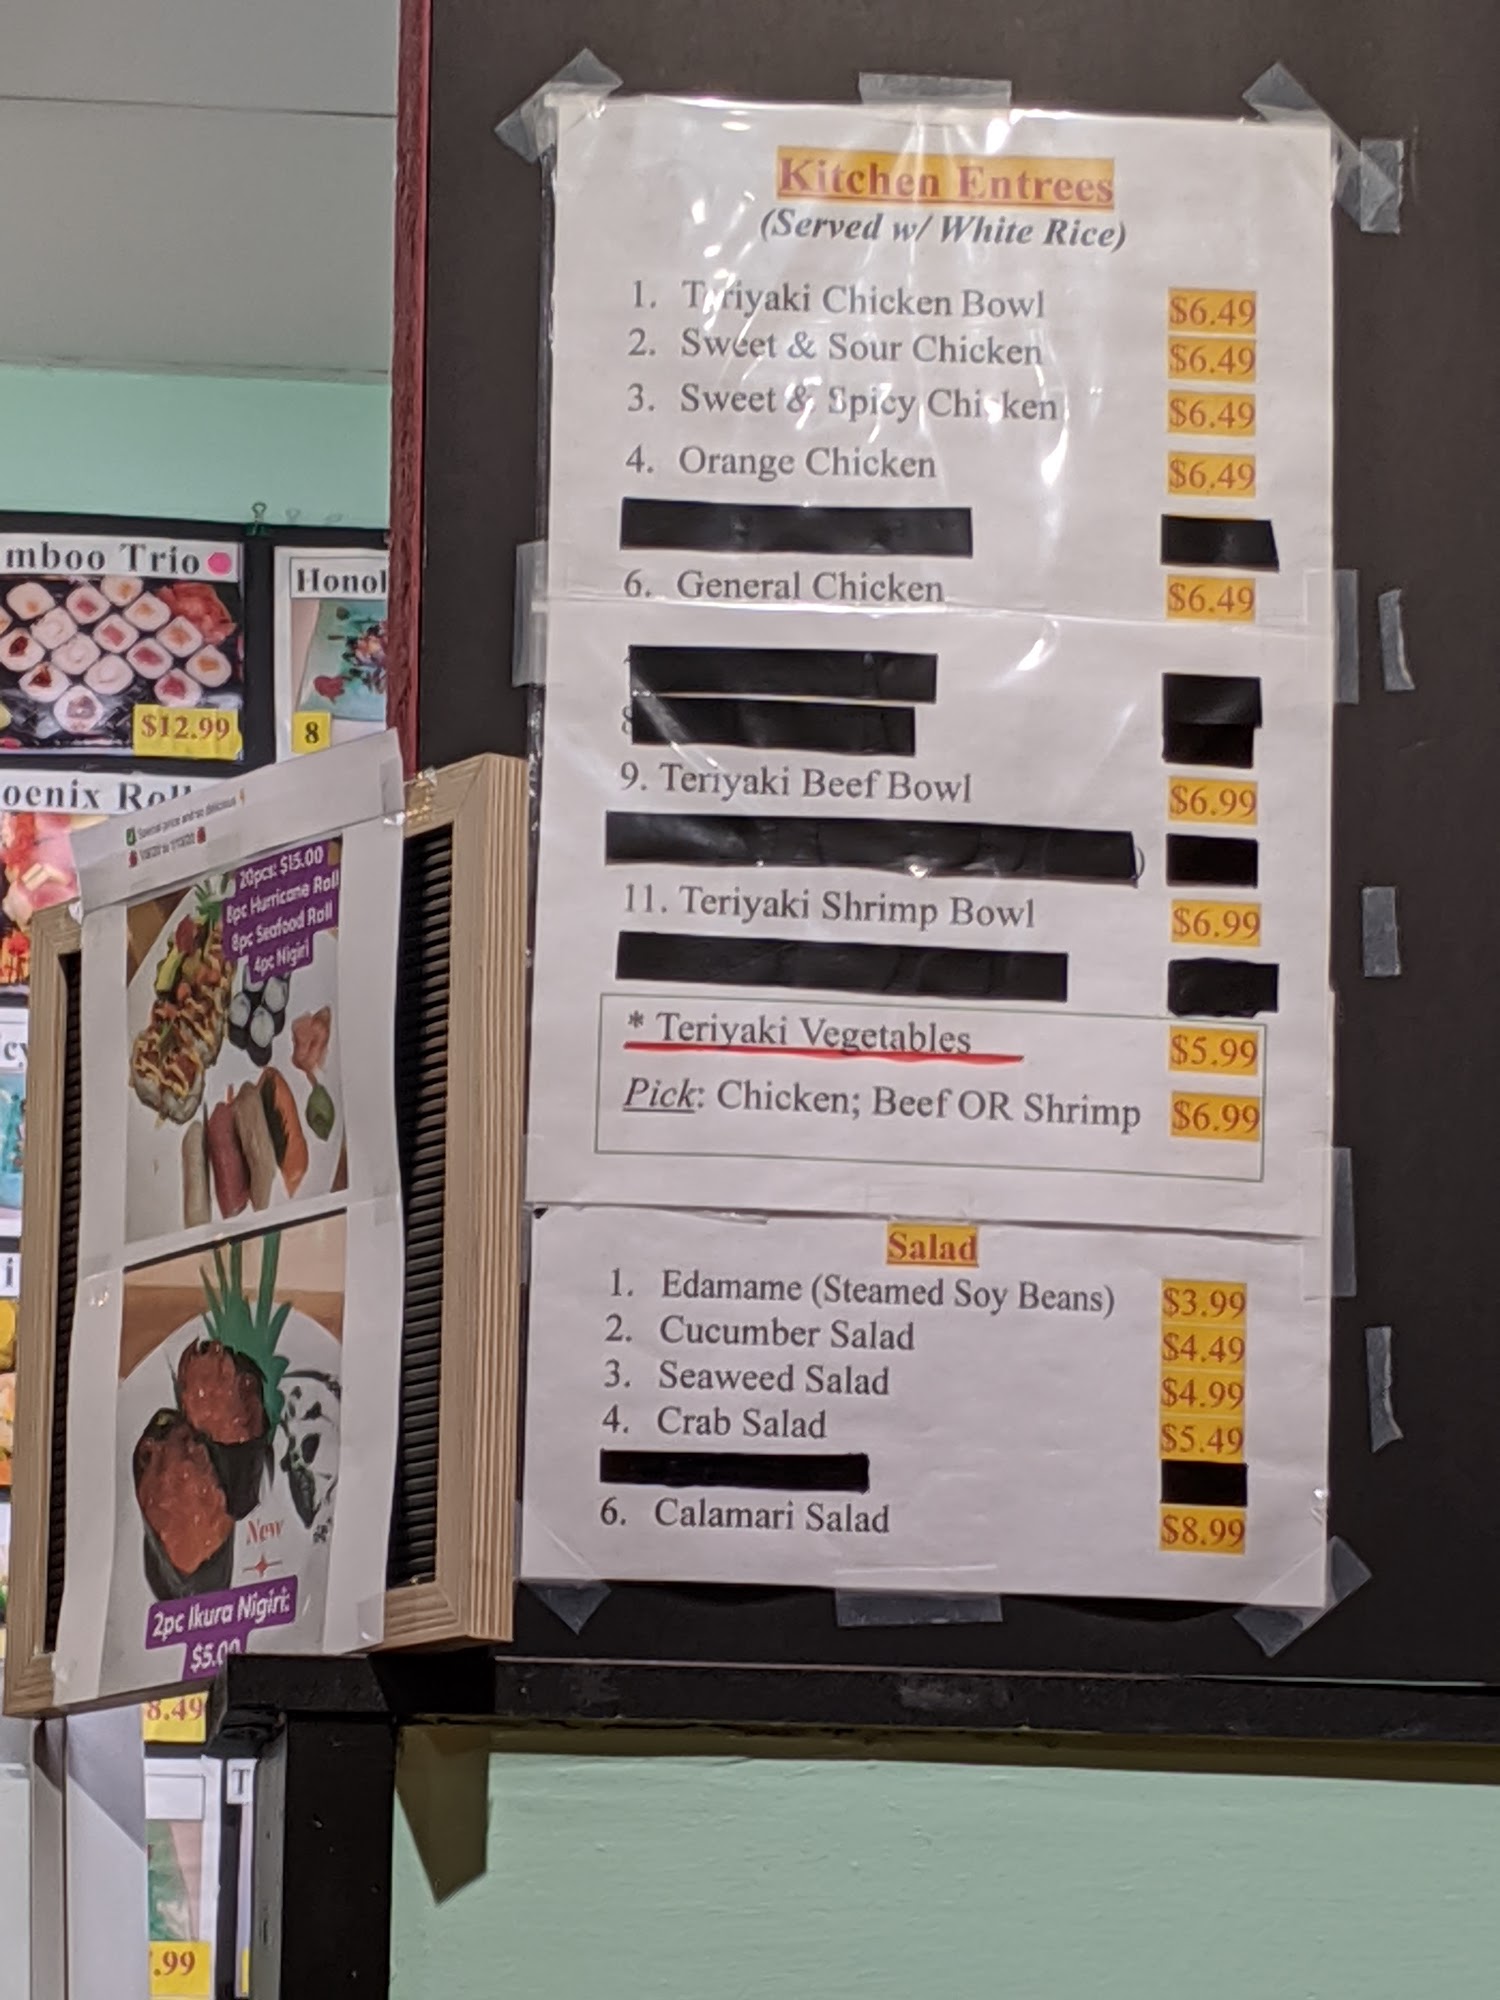 Kitchen Entrees
(Served w/ White Rice)
1. Teriyaki Chicken Bowl $6.49
2. Sweet & Sour Chicken $6.49
3. Sweet & Spicy Chicken $6.49
4. Orange Chicken $6.49
6. General Chicken $6.49
8
9. Teriyaki Beef Bowl $6.99
)
11. Teriyaki Shrimp Bowl $6.99
* Teriyaki Vegetables $5.99
Pick: Chicken; Beef OR Shrimp $6.99
Salad
1. Edamame (Steamed Soy Beans) $3.99
2. Cucumber Salad $4.49
3. Seaweed Salad $4.99
4. Crab Salad $5.49
6. Calamari Salad $8.99
mboo Trio
$12.99
Honol
8
oenix Roll
Special price and so delicious
20pcs: $15.00
8pc Hurricane Roll
8pc Seafood Roll
4pc Nigiri
New
2pc Ikura Nigiri:
$5.00
cy
i
8.49
T
.99